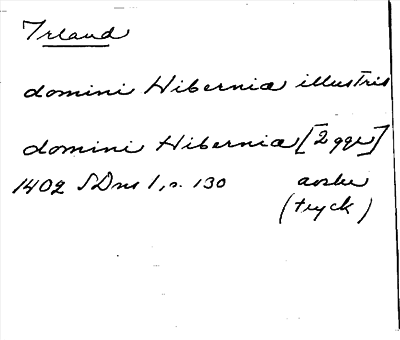 Irland
domini Hibernia illustris
domini Hibernia [2 ggr]
1402 SDns 1, s. 130 avskr
(tryck)